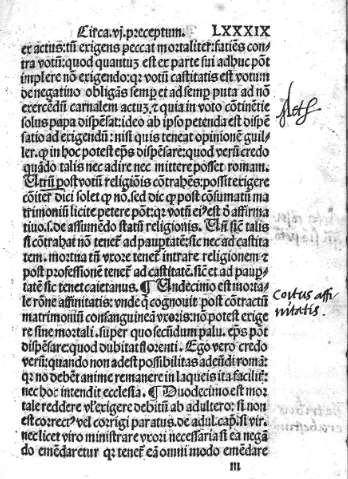 Circa .vj. preceptum. LXXXIX
ex actus: tñ exigens peccat mortaliter: faciẽs con
tra votũ: quod quantuȝ est ex parte sui adhuc põt
implere nõ exigendo: qȝ votũ castitatis est votum
de negatiuo obligãs semp et ad semp puta ad nõ
exercẽdũ carnalem actuȝ, et quia in voto cõtinẽtie
solus papa dispẽsat: ideo ab ipso petenda est dispẽ
satio ad exigendũ: nisi quis teneat opinionẽ guil-
ler. qȝ in hoc potest epũs dispẽsare: quod verũ credo
quãdo talis nec adire nec mittere posset romam.
Utrũ post votũ religiõis cõtrahẽs: possit exigere
cõiter dici solet qȝ nõ. sed dic qȝ post cõsumatũ ma
trimoniũ licite petere põt: qȝ votũ ei⁹ est õ affirma
tiuo. s. de assumẽdo statũ religionis. Uñ sic talis
si cõtrahat nõ teneť ad pauptatẽ: sic nec ad castita
tem. mortua tñ vxore teneť intrare religionem et
post professionẽ teneť ad castitatẽ. sic et ad paup-
tatẽ sic tenet caietanus. ¶ Undecimo est morta-
le rõne affinitatis: vnde qȝ cognouit post cõtractũ
matrimoniũ consanguineã vxoris: nõ potest exige
re sine mortali. super quo secũdum palu. epũs põt
dispẽsare: quod dubitat florenti. Ego vero credo
verũ: quando non adest possibilitas adeũdi romã:
qȝ nõ debẽt anime remanere in laqueis ita faciliť:
nec hoc intendit ecclesia. ¶ Duodecimo est mor
tale reddere vel exigere debitũ ab adultero: si non
est correct⁹ vel corrigi paratus. de adul. cap. si vir.
nec licet viro ministrare vxori necessaria si ea negã
do emẽdaretur qȝ teneť eã omni modo emẽdare
m
Coitus affi-
nitatis.